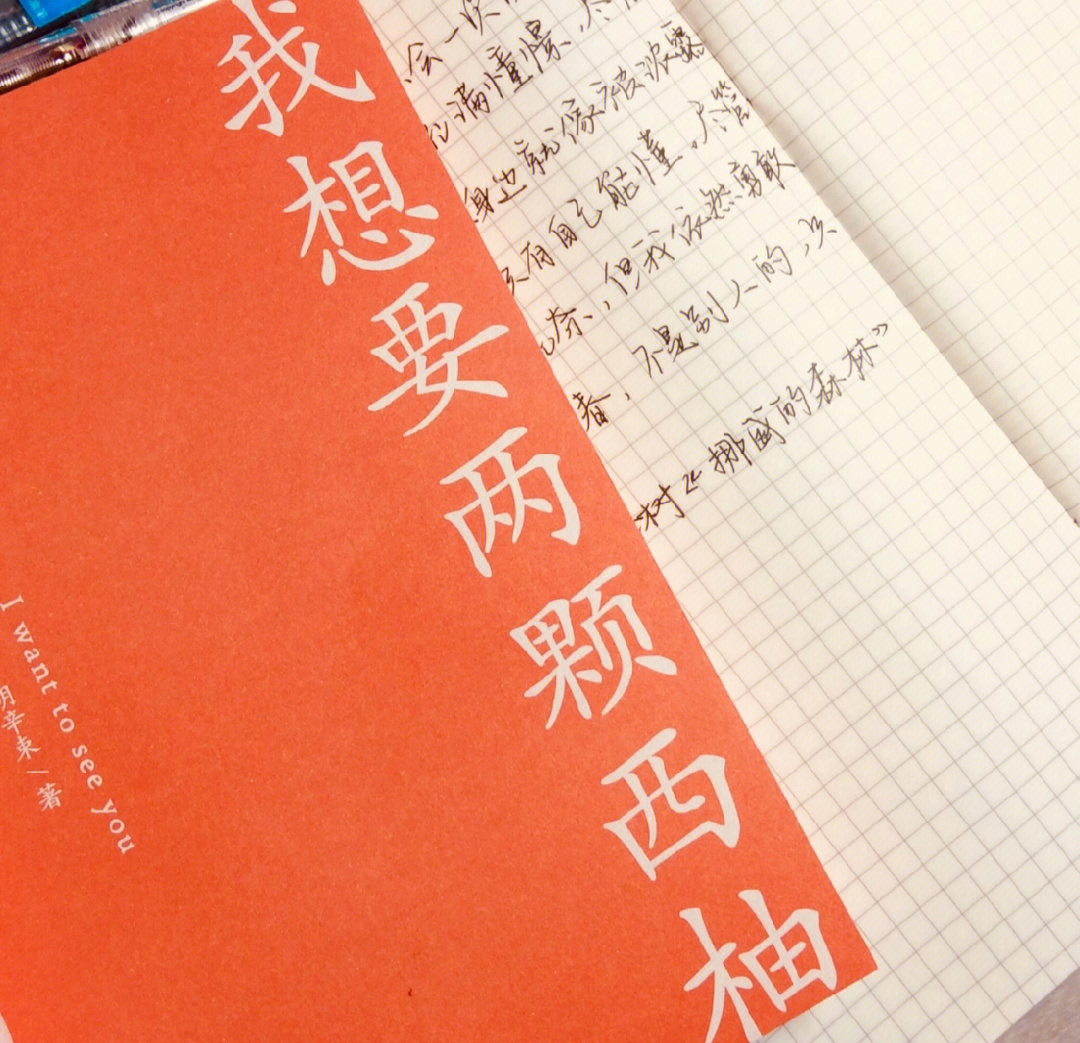 我想要两颗西柚
I want to see you
明辛束/著
会一次
满憧憬,尽
身边就像被浓雾
只有自己能懂,尽管
奈,但我依然勇敢
春,不是别人的,只
树《挪威的森林》